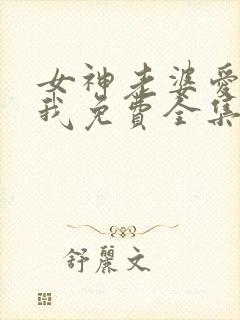 女神老婆愛
我免費全集
舒麗文